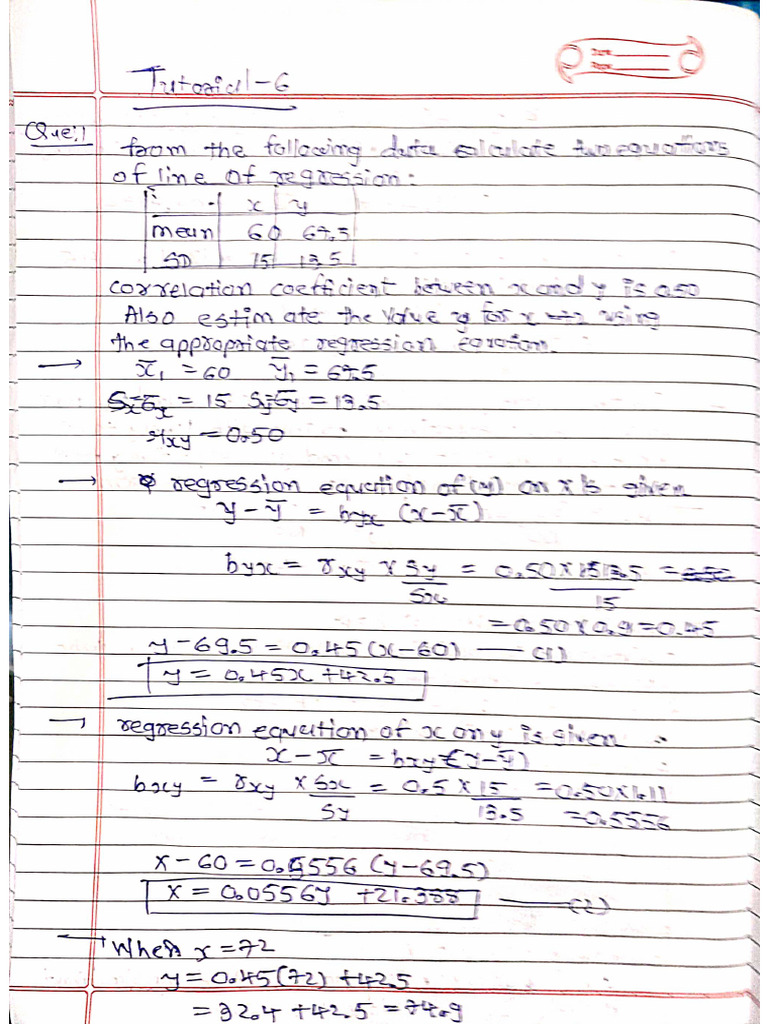 Tutorial-6
Que:1 from the following data calculate two equations
of line of regression:
x y
mean 60 67.5
SD 15 13.5
correlation coefficient between x and y is 0.50
Also estimate the value y for x = 72 using
the appropriate regression equation.
→ x̄₁ = 60 ȳ₁ = 67.5
= 15 = 13.5
rxy = 0.50
→ regression equation of (y) on x is given
y - ȳ = byx (x-x̄)
byx = rxy × Sy/Sx = 0.50 × 13.5/15
= 0.50 × 0.9 = 0.45
y - 69.5 = 0.45 (x-60) — (1)
y = 0.45x + 42.5
→ regression equation of x on y is given
x - x̄ = bxy (y-ȳ)
bxy = rxy × Sx/Sy = 0.5 × 15/13.5 = 0.50×1.11
= 0.5556
x - 60 = 0.5556 (y-69.5)
x = 0.0556y + 21.388 — (2)
→ When x = 72
y = 0.45(72) + 42.5
= 32.4 + 42.5 = 74.9